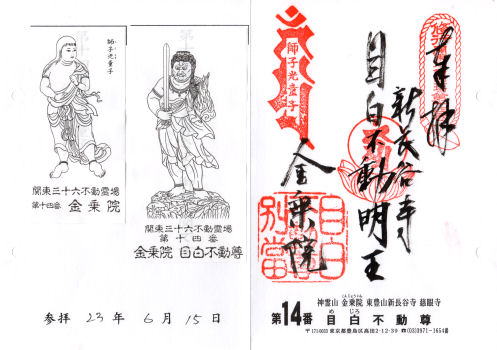 師子光童子
関東三十六不動霊場
第十四番 金乗院
関東三十六不動霊場
第十四番
金乗院 目白不動尊
参拝 23年 6月 15日
奉拝
新長谷寺
目白不動明王
金乗院
師子光童子
目白
別當
神霊山 金乗院 東豊山新長谷寺 慈眼寺
こんじょういん
めじろ
第14番 目白不動尊
〒171-0033 東京都豊島区高田2-12-39 ☎(03)3971-1654番